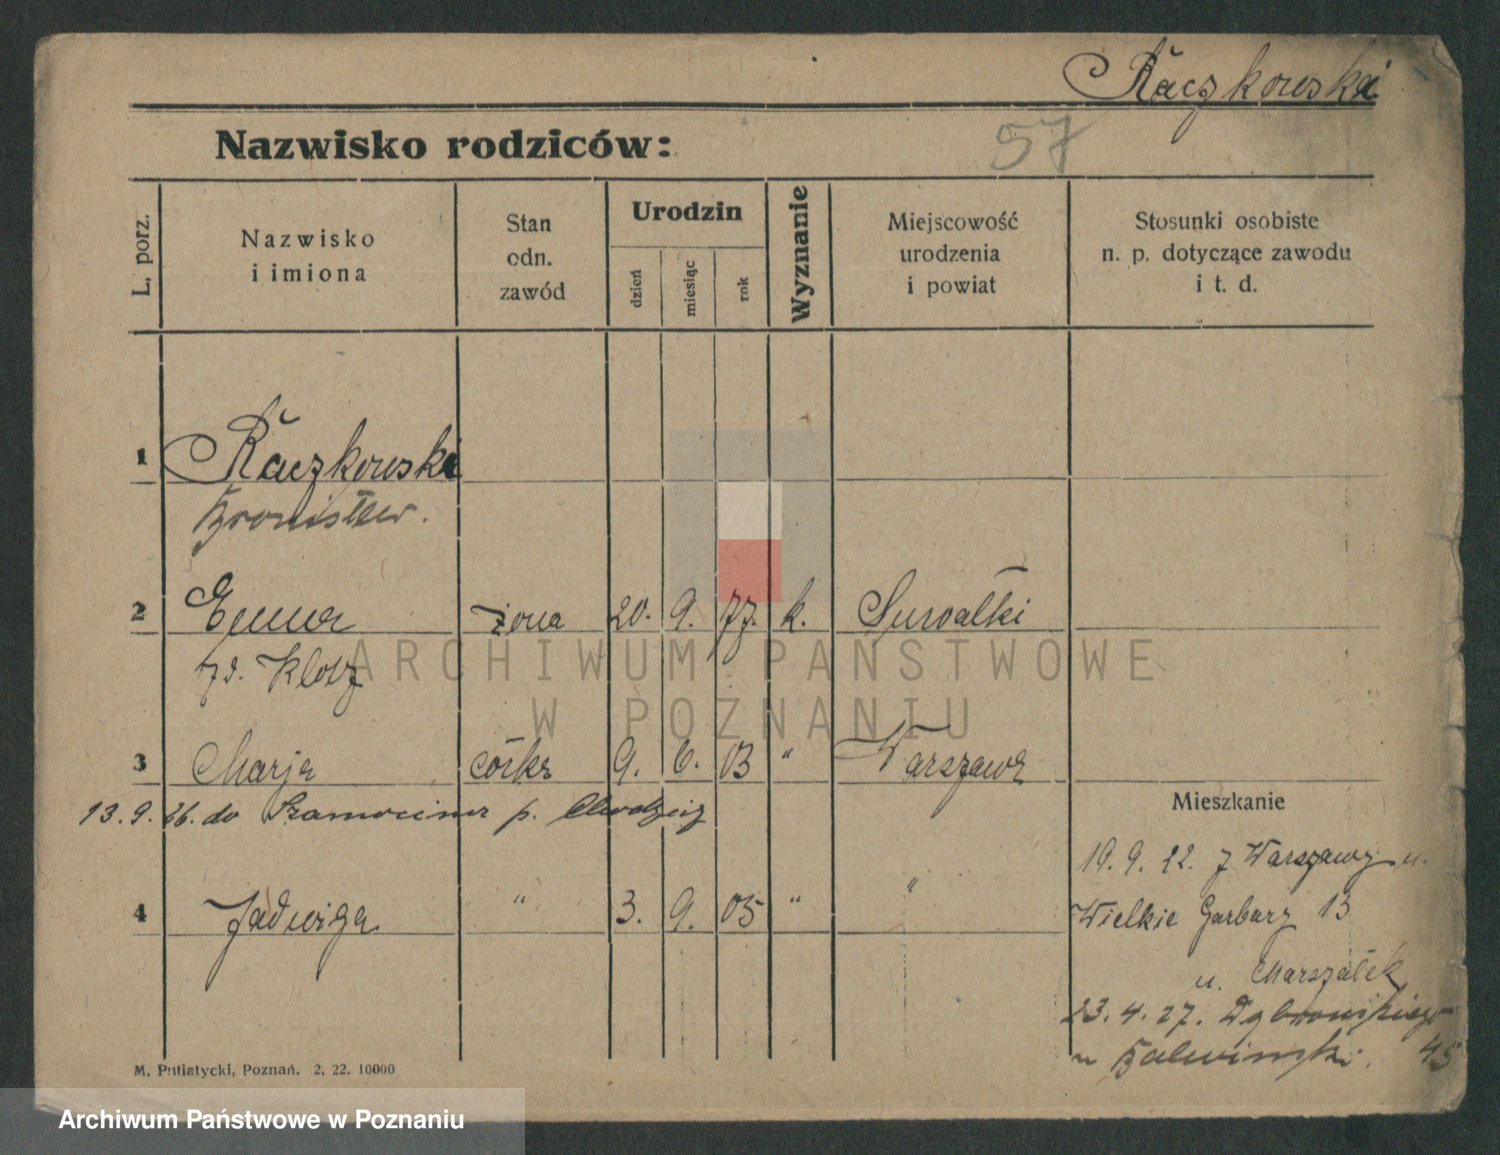 Raczkowska
57
Nazwisko rodziców:
L. porz.
Nazwisko
i imiona
Stan
odn.
zawód
Urodzin
dzień
miesiąc
rok
Wyznanie
Miejscowość
urodzenia
i powiat
Stosunki osobiste
n. p. dotyczące zawodu
i t. d.
1 Raczkowski
Bronisław.
2 Emma żona 20. 9. 77. k. Suwałki
ARCHIWUM PAŃSTWOWE
W POZNANIU
3 Marja córka 9. 6. 03 " Warszawa
13.9.26. do Szamocina p. Chodzież
Mieszkanie
19. 9. 22. z Warszawy u.
4 Jadwiga " 3. 9. 05 " "
Wielkie Garbary 13
u. Marszałek
23. 4. 27. Dąbrowskiego
45
M. Putiatycki, Poznań. 2. 22. 10000
Archiwum Państwowe w Poznaniu